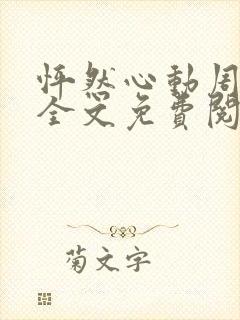 怦然心動周
全文免費閱
菊文字